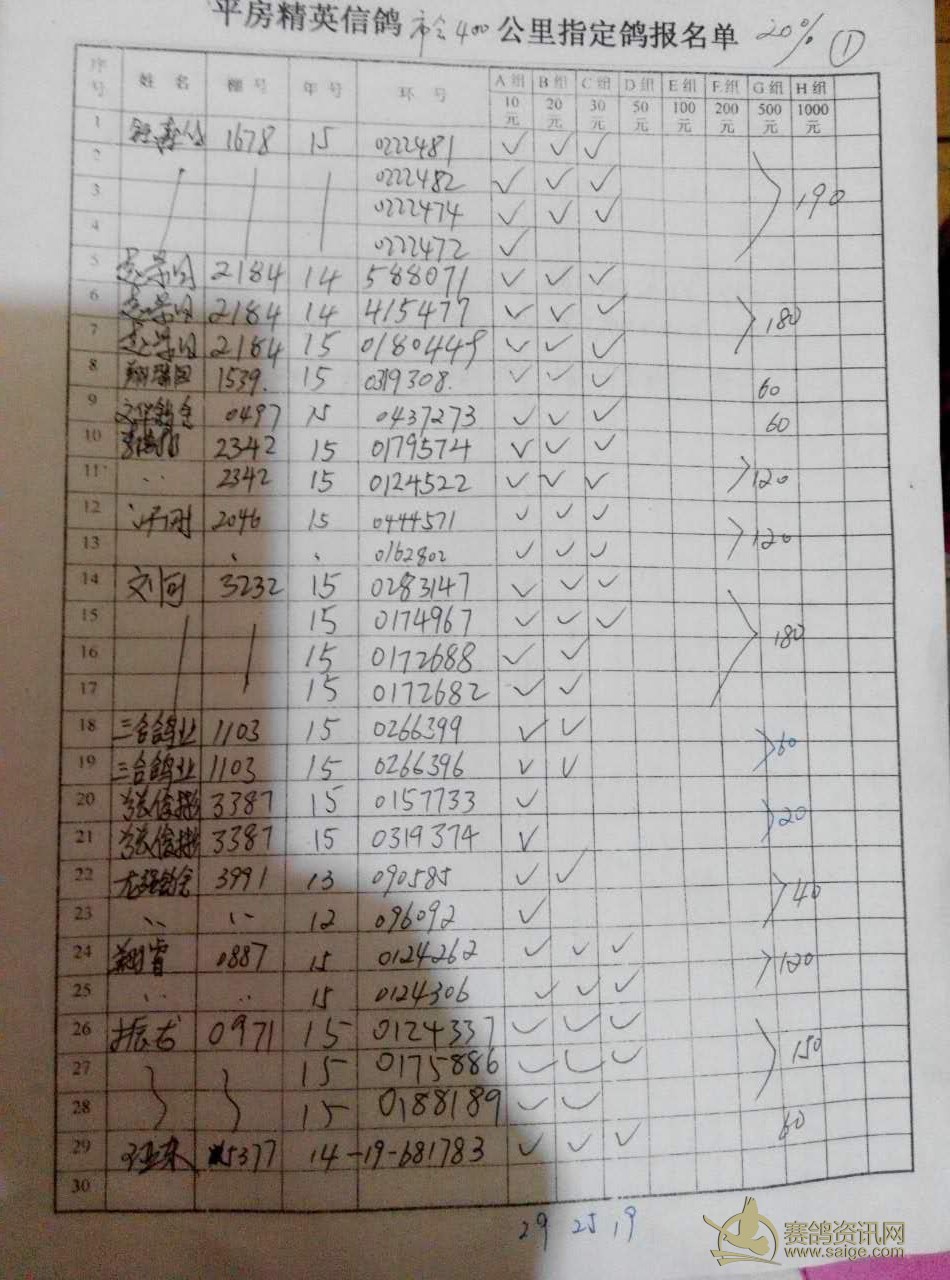 平房精英信鸽 市会400 公里指定鸽报名单 20% ①
序号 姓 名 棚 号 年 号 环 号 A组 10元 B组 20元 C组 30元 D组 50元 E组 100元 F组 200元 G组 500元 H组 1000元
1 1678 15 0222481 ✓ ✓ ✓
2 0222482 ✓ ✓ ✓
3 0222474 ✓ ✓ ✓ 190
4 0222472 ✓
5 2184 14 588071 ✓ ✓ ✓
6 2184 14 415477 ✓ ✓ ✓ 180
7 2184 15 0180449 ✓ ✓ ✓
8 1539. 15 0319308. ✓ ✓ ✓ 60
9 0497 15 0437273 ✓ ✓ ✓ 60
10 2342 15 0179574 ✓ ✓ ✓
11 2342 15 0124522 ✓ ✓ ✓ 120
12 2046 15 0444571 ✓ ✓ ✓
13 0162802 ✓ ✓ ✓ 120
14 刘何 3232 15 0283147 ✓ ✓ ✓
15 15 0174967 ✓ ✓ ✓ 180
16 15 0172688 ✓ ✓
17 15 0172682 ✓ ✓
18 三合鸽业 1103 15 0266399 ✓ ✓
19 三合鸽业 1103 15 0266396 ✓ ✓ 60
20 3387 15 0157733 ✓
21 3387 15 0319374 ✓ 20
22 3991 13 090585 ✓ ✓
23 12 096092 ✓ 40
24 翔睿 0887 15 0124262 ✓ ✓ ✓
25 15 0124306 ✓ ✓ ✓ 120
26 振龙 0971 15 0124337 ✓ ✓ ✓
27 15 0175886 ✓ ✓ ✓ 150
28 15 0188189 ✓ ✓
29 5377 14-19-681783 ✓ ✓ ✓ 60
30
29 25 19
赛鸽资讯网
www.saige.com